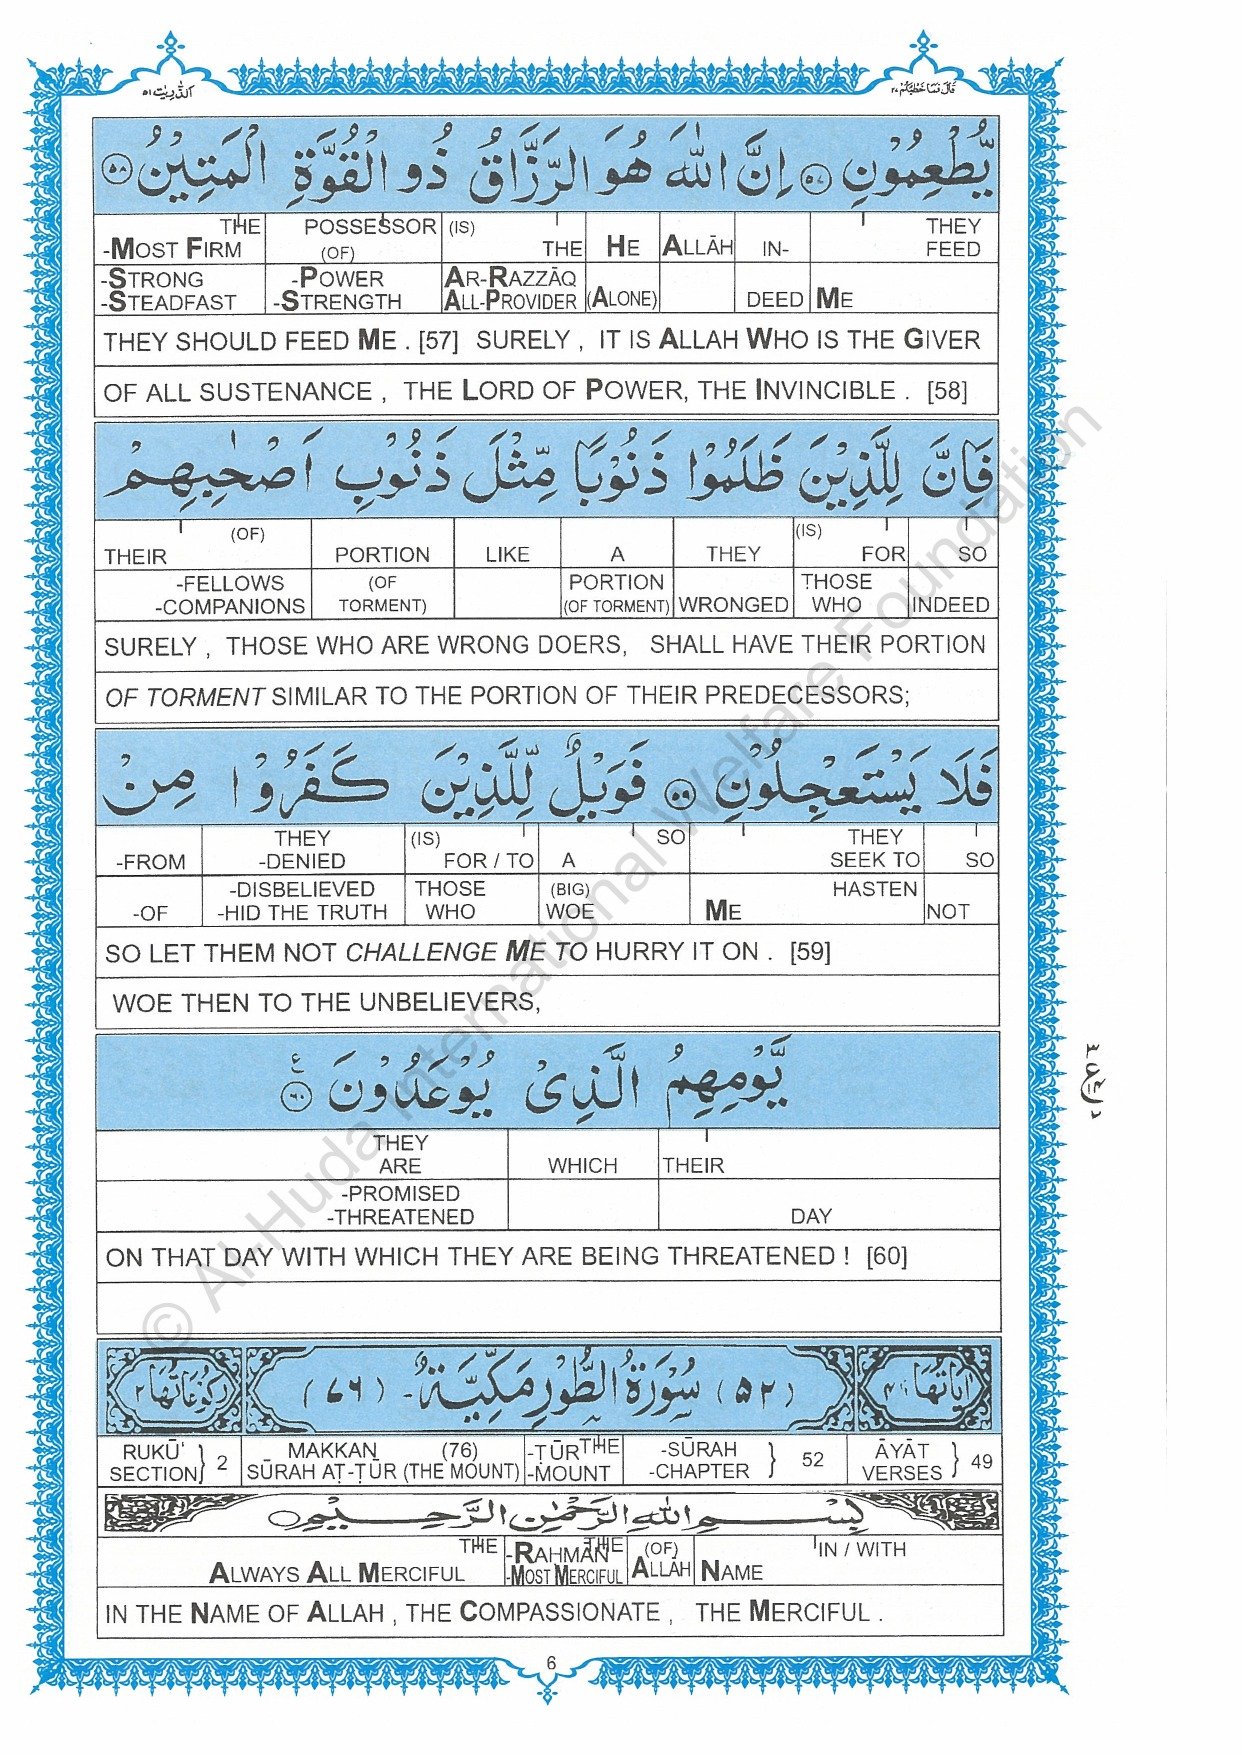 قَالَ فَمَا خَطْبُكُمْ ٢٧
اَلذّٰرِيٰت ٥١
يُّطْعِمُوْنِ ۝٥٧ اِنَّ اللّٰهَ هُوَ الرَّزَّاقُ ذُو الْقُوَّةِ الْمَتِيْنُ ۝٥٨
THE POSSESSOR (IS) THEY
-MOST FIRM (OF) THE HE ALLĀH IN- FEED
-STRONG -POWER AR-RAZZĀQ
-STEADFAST -STRENGTH ALL-PROVIDER (ALONE) DEED ME
THEY SHOULD FEED ME . [57] SURELY , IT IS ALLAH WHO IS THE GIVER
OF ALL SUSTENANCE , THE LORD OF POWER, THE INVINCIBLE . [58]
فَاِنَّ لِلَّذِيْنَ ظَلَمُوْا ذَنُوْبًا مِّثْلَ ذَنُوْبِ اَصْحٰبِهِمْ
(OF) (IS)
THEIR PORTION LIKE A THEY FOR SO
-FELLOWS (OF PORTION THOSE
-COMPANIONS TORMENT) (OF TORMENT) WRONGED WHO INDEED
SURELY , THOSE WHO ARE WRONG DOERS, SHALL HAVE THEIR PORTION
OF TORMENT SIMILAR TO THE PORTION OF THEIR PREDECESSORS;
فَلَا يَسْتَعْجِلُوْنِ ۝٥٩ فَوَيْلٌ لِّلَّذِيْنَ كَفَرُوْا مِنْ
THEY (IS) SO THEY
-FROM -DENIED FOR / TO A SEEK TO SO
-DISBELIEVED THOSE (BIG) HASTEN
-OF -HID THE TRUTH WHO WOE ME NOT
SO LET THEM NOT CHALLENGE ME TO HURRY IT ON . [59]
WOE THEN TO THE UNBELIEVERS,
يَّوْمِهِمُ الَّذِيْ يُوْعَدُوْنَ ۝٦٠ ع
THEY
ARE WHICH THEIR
-PROMISED
-THREATENED DAY
ON THAT DAY WITH WHICH THEY ARE BEING THREATENED ! [60]
اٰيَاتُهَا ٤٩ (٥٢) سُوْرَةُ الطُّوْرِ مَكِّيَّةٌ - (٧٦) رُكُوْعَاتُهَا ٢
RUKŪ' MAKKAN (76) -ṬŪR THE -SŪRAH ĀYĀT
SECTION} 2 SŪRAH AṬ-ṬŪR (THE MOUNT) -MOUNT -CHAPTER } 52 VERSES } 49
بِسْمِ اللّٰهِ الرَّحْمٰنِ الرَّحِيْمِ
THE -RAHMĀN THE (OF) IN / WITH
ALWAYS ALL MERCIFUL -MOST MERCIFUL ALLĀH NAME
IN THE NAME OF ALLAH , THE COMPASSIONATE , THE MERCIFUL .
6
© Al-Huda International Welfare Foundation